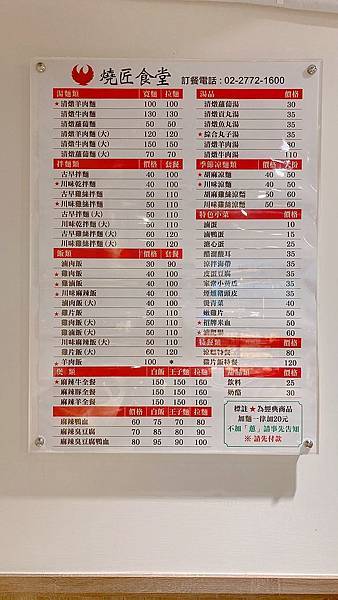 燒匠食堂 訂餐電話 : 02-2772-1600
湯麵類 寬麵 拉麵
★清燉羊肉麵 100 100
清燉牛肉麵 130 130
清燉蘿蔔麵 50 50
清燉羊肉麵(大) 120 120
清燉牛肉麵(大) 150 150
清燉蘿蔔麵(大) 70 70
拌麵類 價格 套餐
古早拌麵 40 100
★川味乾拌麵 40 100
古早雞絲拌麵 50 110
★川味雞絲拌麵 50 110
古早拌麵(大) 50 110
川味乾拌麵(大) 50 110
古早雞絲拌麵(大) 60 120
川味雞絲拌麵(大) 60 120
飯類 價格 套餐
滷肉飯 30 90
★雞肉飯 40 100
★川味麻辣飯 40 100
滷肉飯(大) 40 100
★雞片飯 50 110
雞肉飯(大) 50 110
川味麻辣飯(大) 50 110
雞片飯(大) 60 120
★羊肉飯 100 *
煲類 白飯 王子麵 拉麵
★麻辣牛全餐 150 150 160
麻辣豚全餐 150 150 160
麻辣羊全餐 150 150 160
價格 白飯 王子麵 拉麵
麻辣鴨血 60 75 70 80
麻辣臭豆腐 70 85 80 90
麻辣臭豆腐鴨血 80 95 90 100
湯品 價格
清燉蘿蔔湯 30
清燉貢丸湯 35
清燉魚丸湯 35
★綜合丸子湯 35
清燉羊肉湯 80
清燉牛肉湯 110
季節涼麵類 價格
★胡麻涼麵 40 50
★川味涼麵 40 50
胡麻雞絲涼麵 50 60
★川味雞絲涼麵 50 60
特色小菜 價格
滷蛋 10
滷鴨蛋 15
溏心蛋 25
醋溜酸耳 35
涼拌海帶 35
皮蛋豆腐 35
家常小黃瓜 35
煙燻豬頭皮 35
燙青菜 40
嫩雞片 50
★招牌米血 50
100
特餐類 價格
涼麵特餐 80
雞片飯特餐 120
價格
飲料 25
奶酪 30
標註★為經典商品
加麵一律加20元
不加「蔥」請事先告知
※ 請先付款